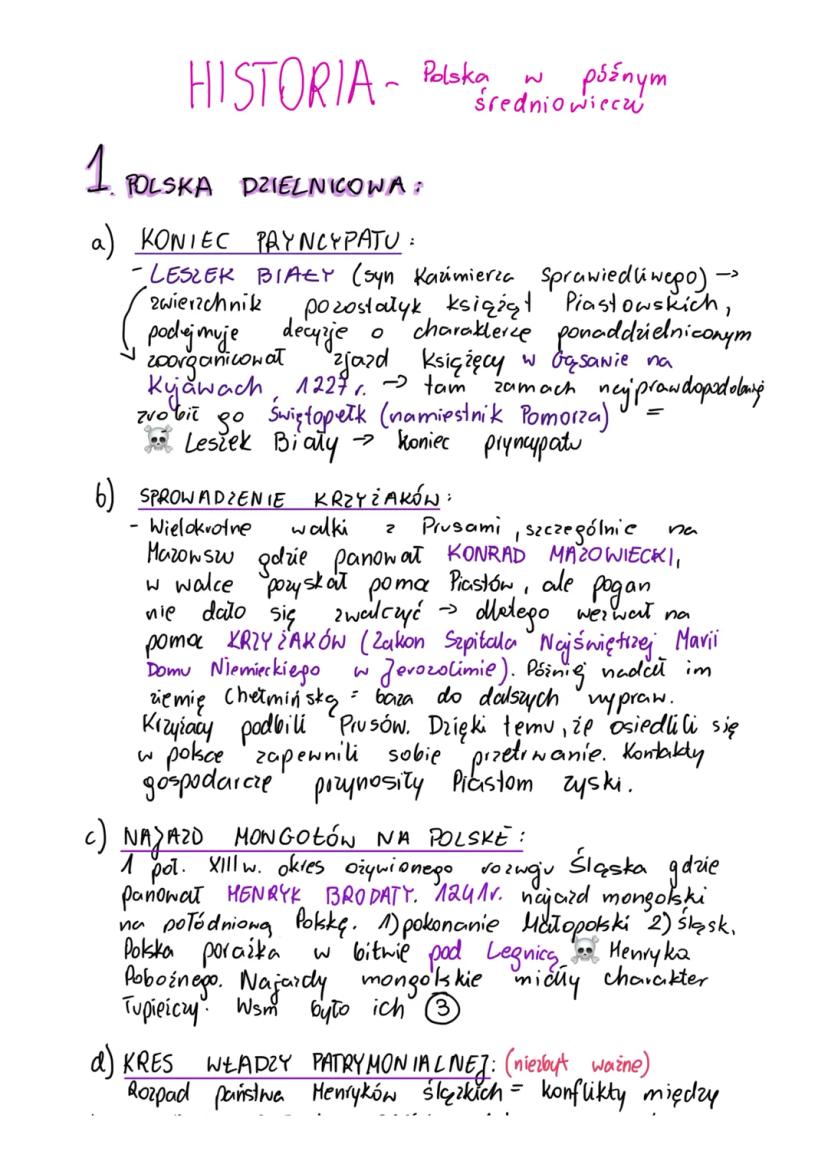 HISTORIA - Polska w późnym
średniowieczu
1. POLSKA DZIELNICOWA:
a) KONIEC PRYNCYPATU:
- LESZEK BIAŁY (syn Kazimierza Sprawiedliwego) →
zwierzchnik pozostałyk książąt Piastowskich,
podejmuje decyzje o charakterze ponaddzielniconym
zoorganicował zjazd książęcy w Gąsawie na
Kujawach, 1227 r. → tam zamach najprawdopodobniej
zrobił go Świętopełk (namiestnik Pomorza) =
☠ Leszek Biały → koniec pryncypatu
b) SPROWADZENIE KRZYŻAKÓW:
- Wielokrotne walki z Prusami, szczególnie na
Mazowszu gdzie panował KONRAD MAZOWIECKI,
w walce pozyskał pomoc Piastów, ale pogan
nie dało się zwalczyć → dlatego wezwał na
pomoc KRZYŻAKÓW (Zakon Szpitala Najświętrzej Marii
Domu Niemieckiego w Jerozolimie). Później nadał im
ziemię Chełmińską = baza do dalszych wypraw.
Krzyżacy podbili Prusów. Dzięki temu, że osiedlili się
w polsce zapewnili sobie przetrwanie. Kontakty
gospodarcze przynosiły Piastom zyski.
c) NAJAZD MONGOŁÓW NA POLSKĘ:
1 poł. XIII w. okres ożywionego rozwoju Śląska gdzie
panował HENRYK BRODATY. 1241r. najazd mongolski
na połódniową Polskę. 1) pokonanie Małopolski 2) śląsk.
Polska porażka w bitwie pod Legnicą ☠ Henryka
Pobożnego. Najazdy mongolskie miały charakter
łupieiczy. Wsm było ich ③
d) KRES WŁADZY PATRYMONIALNEJ: (niezbyt ważne)
Rozpad państwa Henryków śląskich = konflikty między